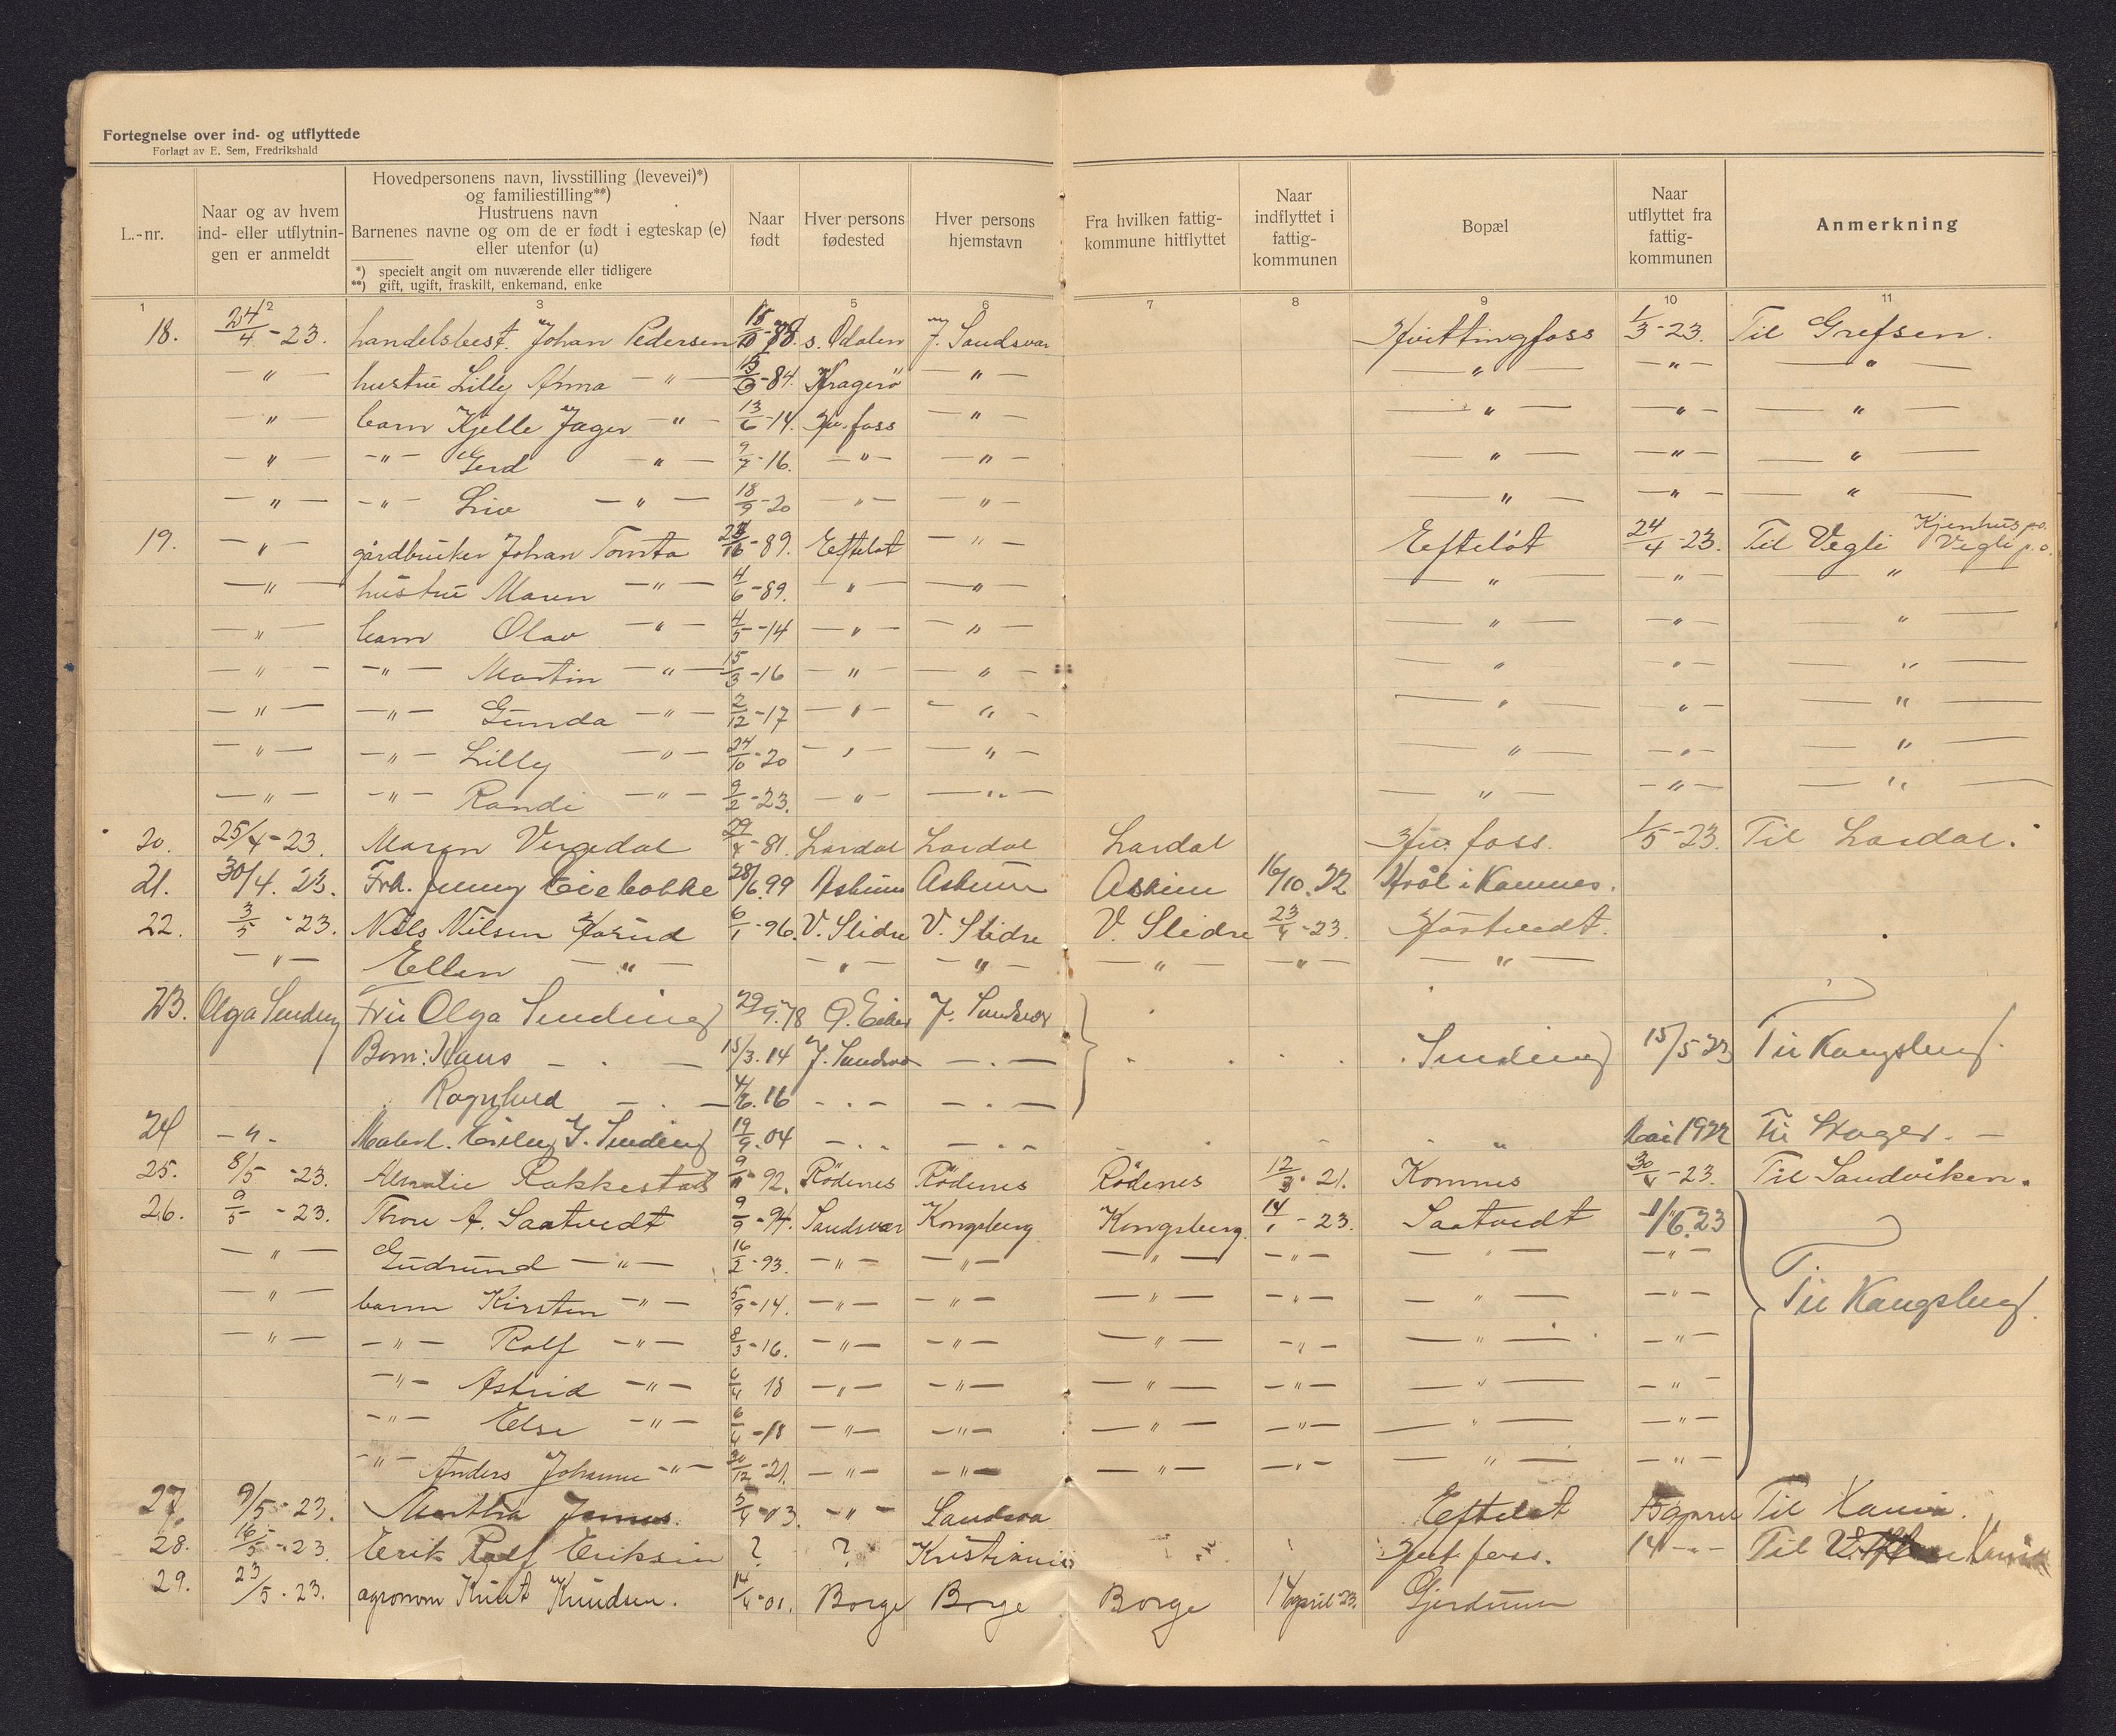 Fortegnelse over ind- og utflyttede
Forlagt av E. Sem, Fredrikshald
L.-nr. Naar og av hvem ind- eller utflytnin- gen er anmeldt Hovedpersonens navn, livsstilling (levevei)*) og familiestilling**) Hustruens navn Barnenes navne og om de er født i egteskap (e) eller utenfor (u) *) specielt angit om nuværende eller tidligere **) gift, ugift, fraskilt, enkemand, enke Naar født Hver persons fødested Hver persons hjemstavn Fra hvilken fattig- kommune hitflyttet Naar indflyttet i fattig- kommunen Bopæl Naar utflyttet fra fattig- kommunen Anmerkning
1 2 3 5 6 7 8 9 10 11
18. 24/4 - 23. handelsbest. Johan Pedersen s. Odalen J. Sandsvær Hvittingfoss 1/3 - 23. Til Grefsen.
— " — hustru Lilly Anna — " — - 84. Kragerö — " — — " — — " — — " —
— " — barn Kjelle Jager — " — 13/6 - 14. Hv. foss — " — — " — — " — — " —
— " — — " — Gerd — " — 9/7 - 16. — " — — " — — " — — " — — " —
— " — — " — Liv — " — 18/9 - 20 — " — — " — — " — — " — — " —
19. — " — gårdbruker Johan Tomta - 89. Efteløt — " — Efteløt 24/4 - 23. Til Vegli Kjenhus p.o. Vegli p.o.
— " — hustru Maren — " — 4/6 - 89. — " — — " — — " — — " — — " —
— " — barn Olav — " — 4/5 - 14 — " — — " — — " — — " — — " —
— " — — " — Martin — " — 15/3 - 16 — " — — " — — " — — " — — " —
— " — — " — Gunda — " — 2/12 - 17 — " — — " — — " — — " — — " —
— " — — " — Lilly — " — 24/10 - 20 — " — — " — — " — — " — — " —
— " — — " — Randi — " — 9/2 - 23. — " — — " — — " — — " — — " —
20. 25/4 - 23. Maren Vergedal 29/4 - 81. Lardal Lardal Lardal Hv. foss. 1/5 - 23. Til Lardal.
21. 30/4. 23. Frk. Jenny 28/6. 99 Askim Askim Askim 16/10. 22 Hvål i Komnes.
22. 3/5 - 23. Nils Nilsen 6/1 - 96. V. Slidre V. Slidre V. Slidre 23/4 - 23. Hostvedt.
— " — Ellen — " — — " — — " — — " — — " — — " —
23. Olga Sending Fru Olga Sending 29/9. 78 Ø. Eiker J. Sandsvær
Barn: Hans — . — 15/3. 14 J. Sandsvær — . — Sending 15/5 23 Til Kongsberg.
Ragnhild — . — 4/6. 16 — . — — . —
24 — " — J. Sending 19/9. 04 — . — — . — " Mai 1922 Til Skoger. —
25. 8/5 - 23. Amalie Rakkestad - 92. Rödenes Rödenes Rödenes 12/3 - 21. Komnes 30/4 - 23. Til Sandviken.
26. 9/5 - 23. Thore A. Saatvedt 9/9 - 94. Sandsvær Kongsberg Kongsberg 14/1 - 23. Saatvedt 1/6. 23
— " — Gudrund — " — 16/2 - 93. — " — — " — — " — — " — — " — — " —
— " — barn Kirsten — " — 5/9 - 14. — " — — " — — " — — " — — " — — " — Til Kongsberg.
— " — — " — Rolf — " — 8/3 - 16. — " — — " — — " — — " — — " — — " —
— " — Astrid — " — 6/4 18 — " — — " — — " — — " — — " — — " —
— " — Else — " — 6/4 - 18 — " — — " — — " — — " — — " — — " —
— " — Anders Johannes — " — 20/12 - 21. — " — — " — — " — — " — — " — — " —
27. 9/5 - 23. Martha 5/4 - 03. — " — Sandsvær Efteløt 15 april Til
28. 16/5 - 23. Erik Rolf Eriksen ? ? Kristiania Hvit. foss. 14 — " — Til
29. 23/5 - 23. agronom Knut Knudsen. 14/4 - 01. Borge Borge Borge 14 april 23. Gjerdrum